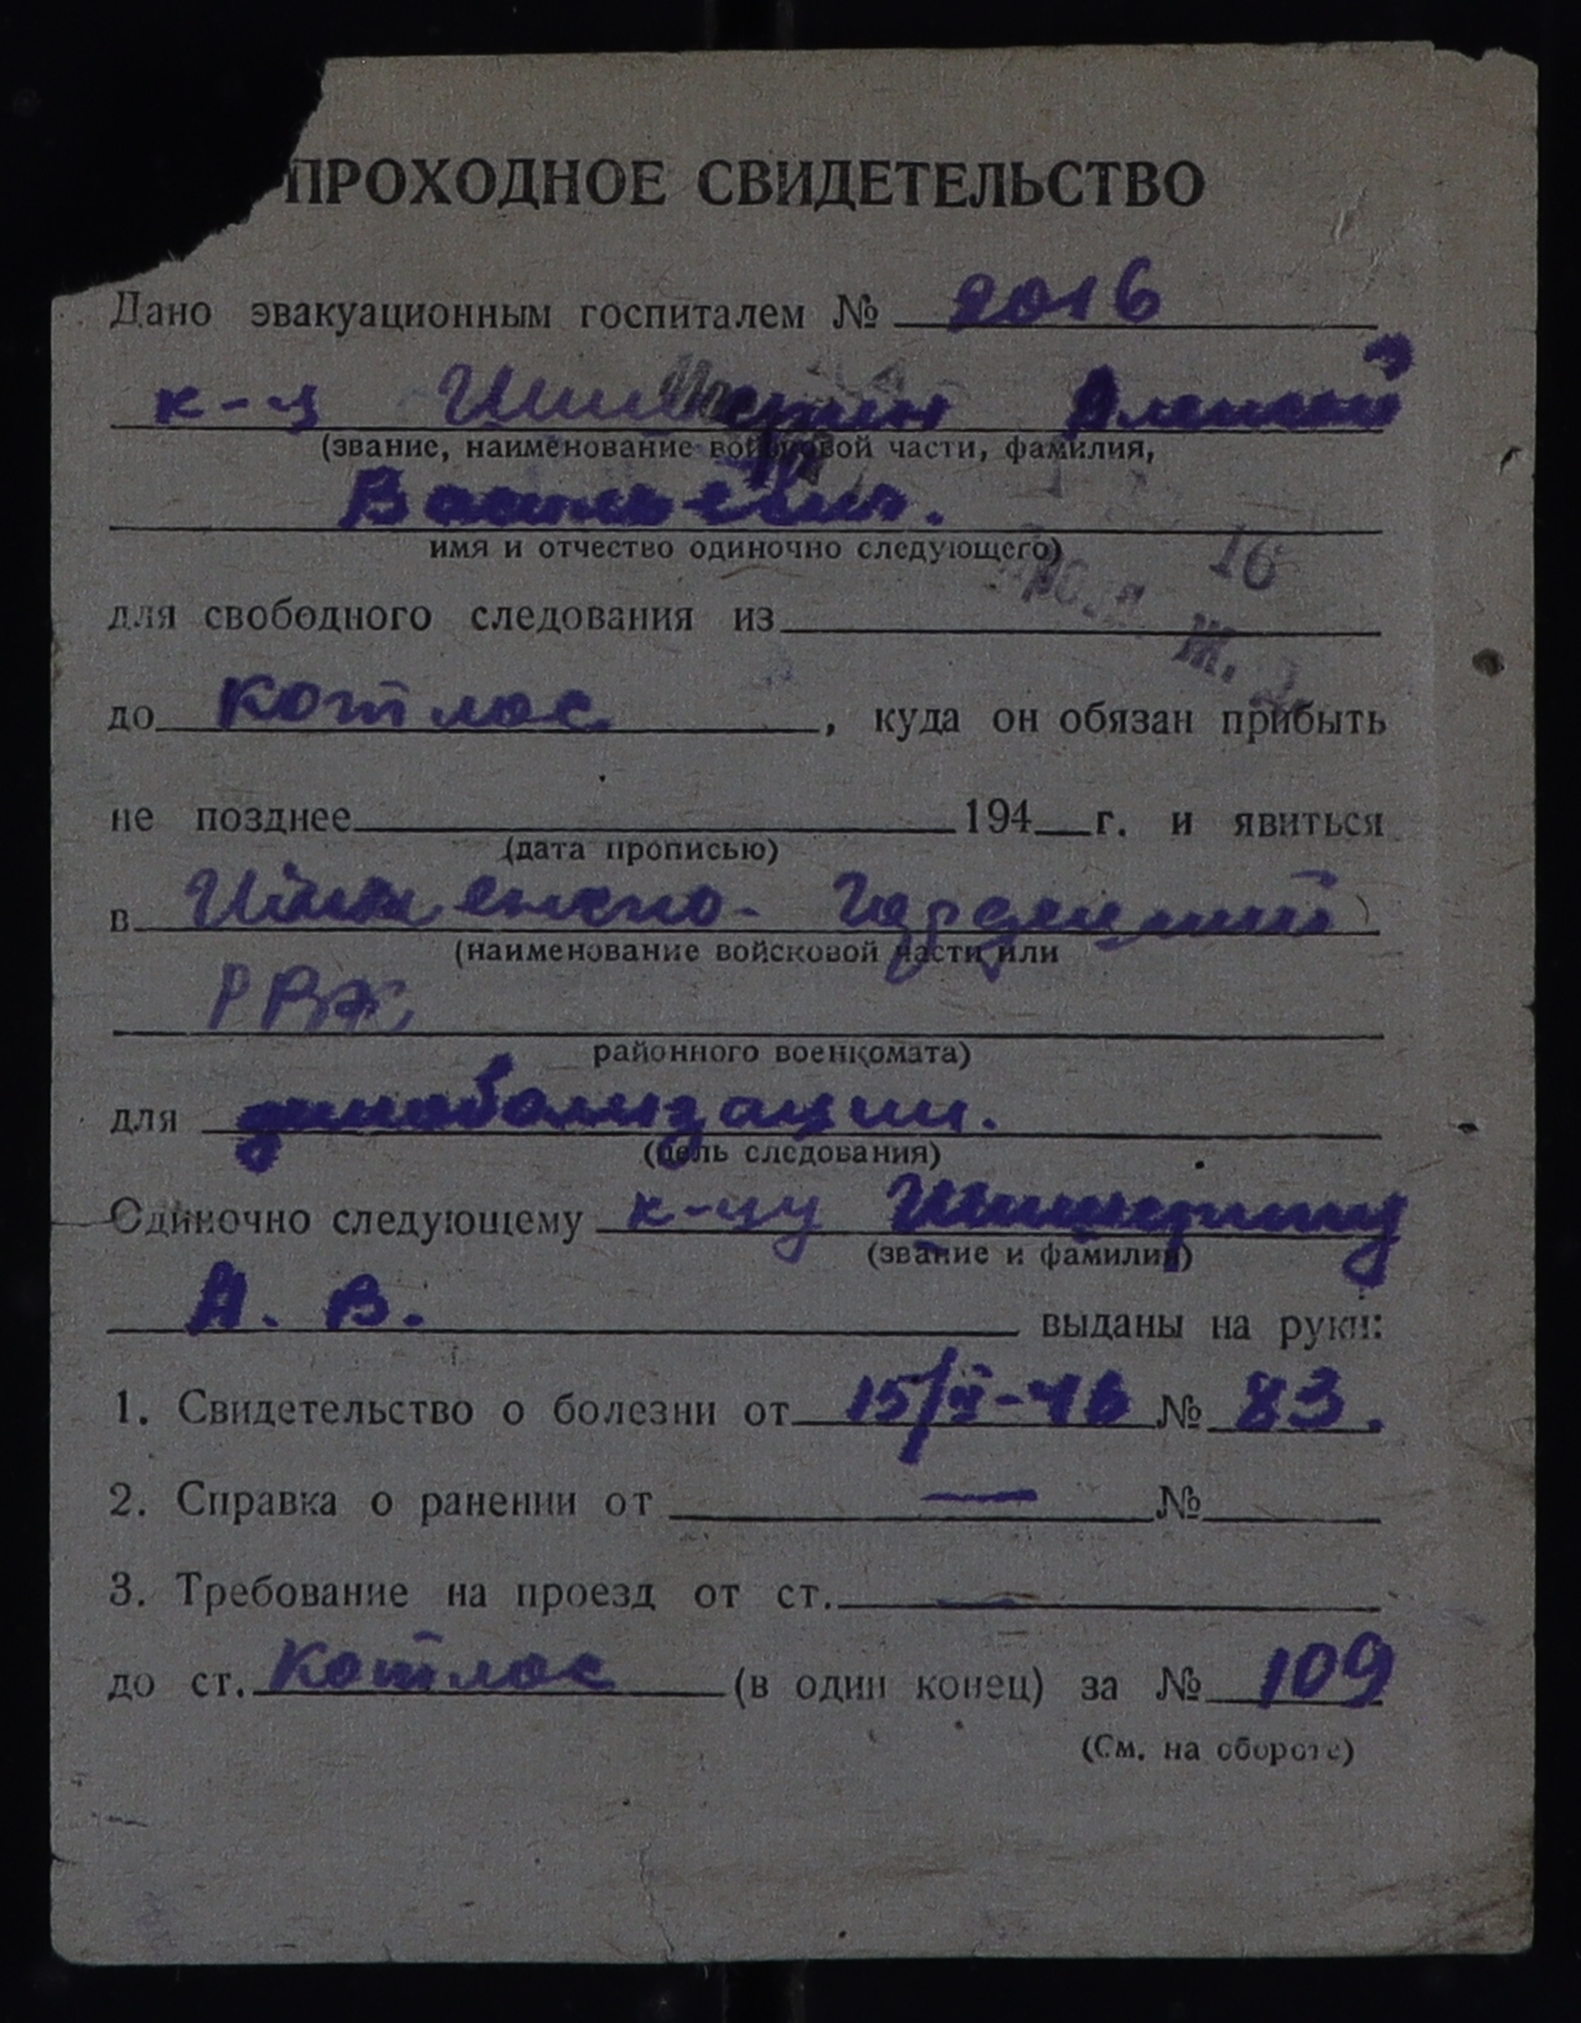 ПРОХОДНОЕ СВИДЕТЕЛЬСТВО
Дано эвакуационным госпиталем № 2016
к-ц Алексей
(звание, наименование войсковой части, фамилия,
Васильевич.
имя и отчество одиночно следующего)
16
для свободного следования из
Ж. 2
до Котлас, куда он обязан прибыть
не позднее 194 г. и явиться
(дата прописью)
в
(наименование войсковой части или
РВК
районного военкомата)
для димобализации.
(цель следования)
Одиночно следующему к-цу
(звание и фамилия)
А. В. выданы на руки:
1. Свидетельство о болезни от № 83.
2. Справка о ранении от — №
3. Требование на проезд от ст. —
до ст. Котлас (в один конец) за № 109
(См. на обороте)